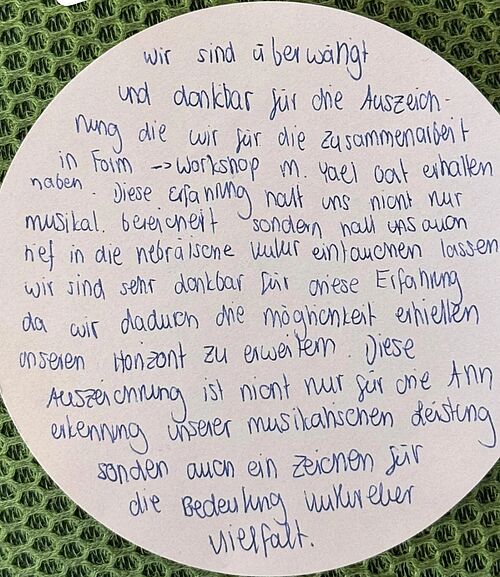 wir sind überwängt
und dankbar für die Auszeich-
nung die wir für die zusammenarbeit
in Form -> Workshop m. Yael Gat erhalten
haben. Diese Erfahrung hatt uns nicht nur
musikal. bereichert sondern hatt uns auch
tief in die hebräische kultur eintauchen lassen
wir sind sehr dankbar für diese Erfahrung
da wir dadurch die möglichkeit erhielten
unseren Horizont zu erweitern. Diese
Auszeichnung ist nicht nur für die Ann
erkennung unserer musikalischen Leistung
sonden auch ein zeichen für
die Bedeutung kultureller
vielfalt.